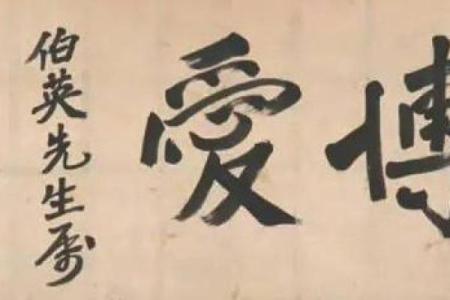 博愛
伯英先生属